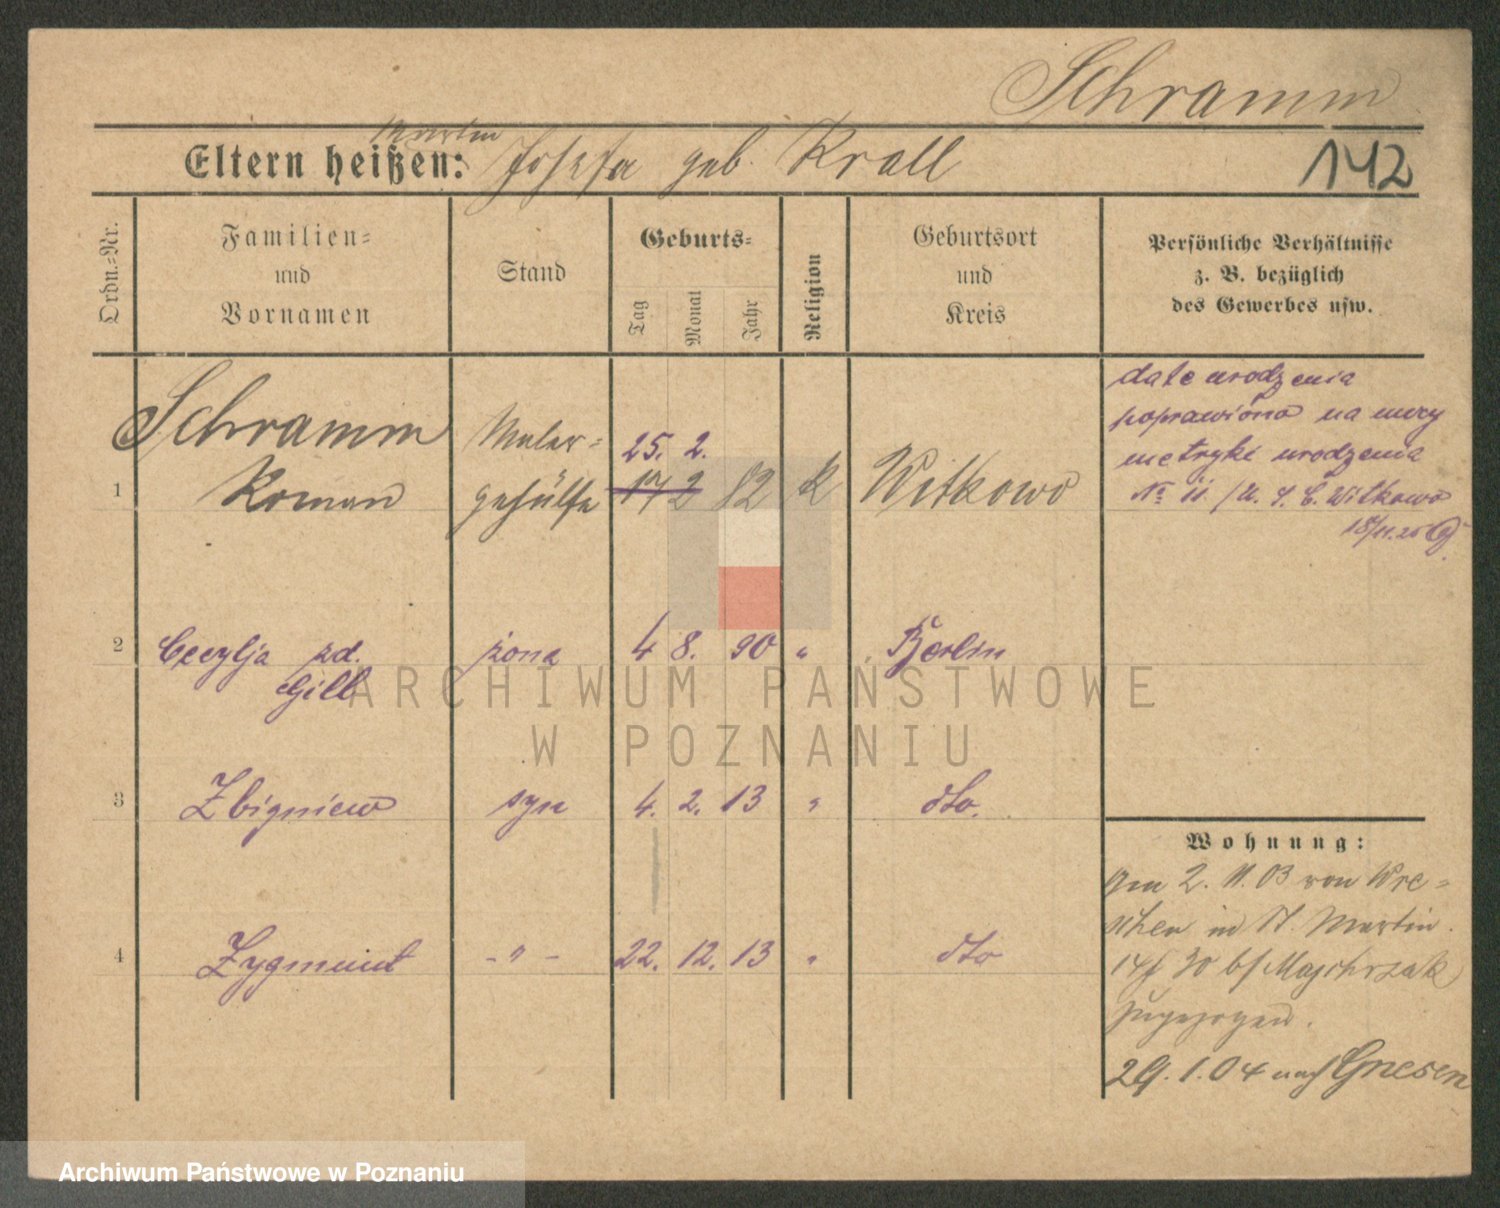 Schramm
Martin
Eltern heißen: Josefa geb. Krall
142
Ordn.-Nr.
Familien-
und
Vornamen
Stand
Geburts-
Tag
Monat
Jahr
Religion
Geburtsort
und
Kreis
Persönliche Verhältnisse
z. B. bezüglich
des Gewerbes usw.
Schramm
Maler-
25. 2.
1 Roman gehülfe 17 2 82 k Witkowo
date urodzenia
poprawiono na mocy
metryki urodzenia
No 11 / U. S. C. Witkowo
18/11.25
2 Cecylja zd. żona 4 8. 90 " Berlin
Gill
ARCHIWUM PAŃSTWOWE
W POZNANIU
3 Zbigniew syn 4. 2. 13 " dto.
4 Zygmunt - " - 22. 12. 13 " dto
Wohnung:
Am 2. 11. 03 von Wre-
schen in St. Martin
14/ 30 b/ Majchrzak
zugezogen.
29. 1. 04 nach Gnesen
Archiwum Państwowe w Poznaniu